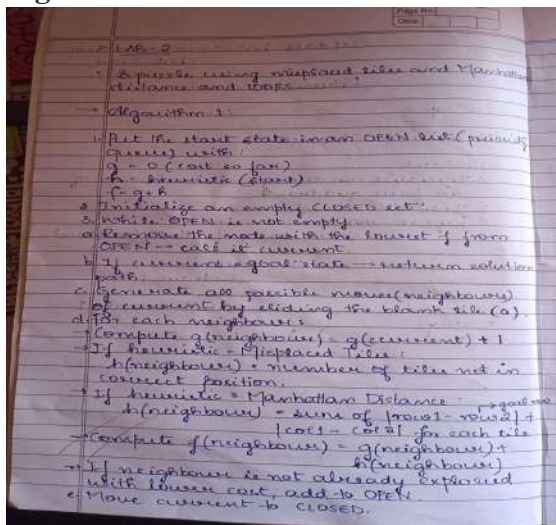 Page No
Date
LAB-2
8 puzzle using misplaced tiles and Manhattan
distance and IDDFS
→ Algorithm 1:
1. Put the start state in an OPEN list (priority
queue) with:
g = 0 (cost so far)
h = heuristic (start)
f = g+h
2. Initialize an empty CLOSED set.
3. While OPEN is not empty
a. Remove the node with the lowest f from
OPEN → call it current
b. If current = goal state → return solution
path.
c. Generate all possible moves (neighbours)
of current by sliding the blank tile (0).
d. For each neighbour:
→ Compute g(neighbour) = g(current) + 1
→ If heuristic = Misplaced Tiles:
h(neighbour) = number of tiles not in
correct position.
→ If heuristic = Manhattan Distance:
→ goal
h(neighbour) = sum of |row1 - row2| +
|col1 - col2| for each tile
→ Compute f(neighbour) = g(neighbour) +
h(neighbour)
→ If neighbour is not already explored
with lower cost, add to OPEN.
e. Move current to CLOSED.